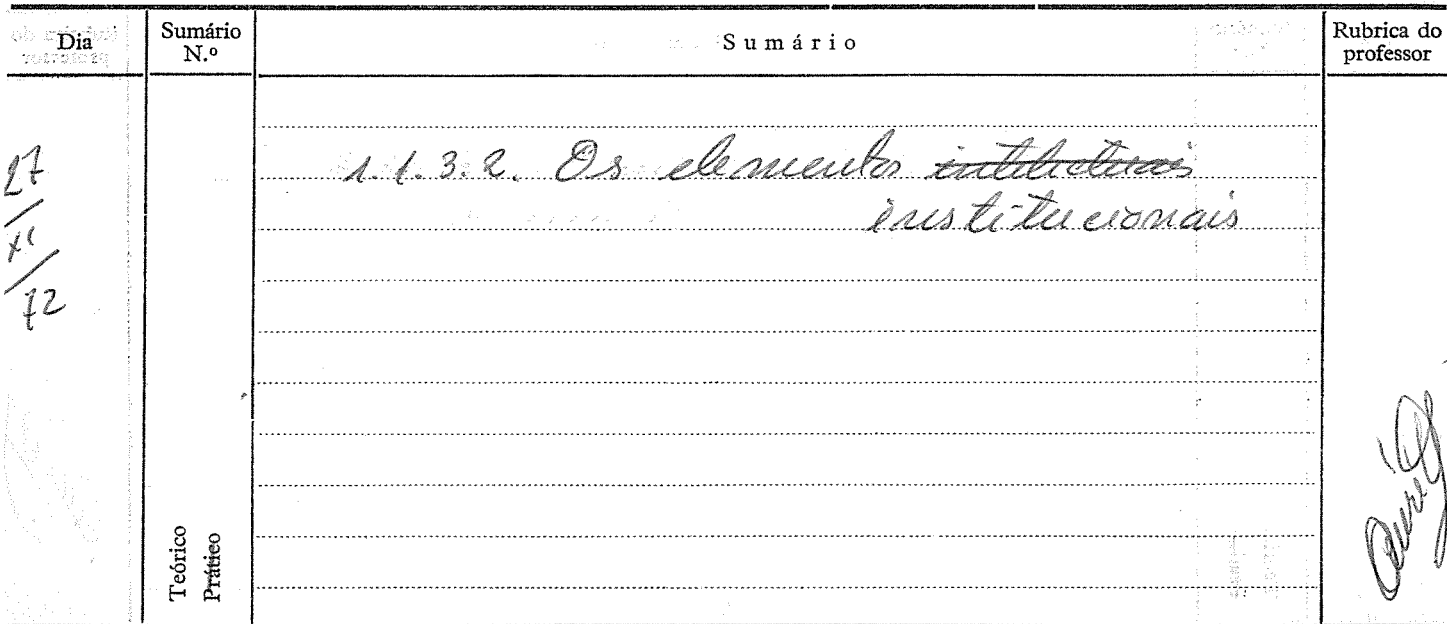 Dia
Sumário N.º
Sumário
Rubrica do professor
27
XI
72
1.1.3.2. Os elementos intelectuais
institucionais
Teórico
Prático